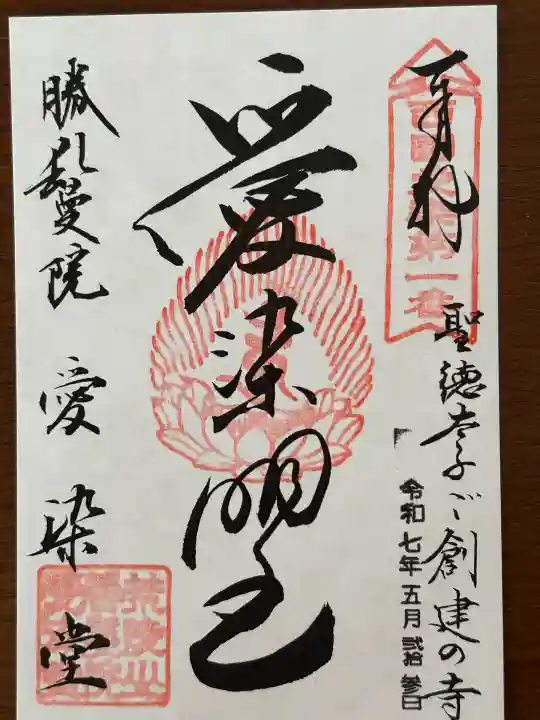 奉拝
西国愛染第一番
聖徳太子ご創建の寺
令和七年五月弐拾参日
愛染明王
勝鬘院 愛染堂